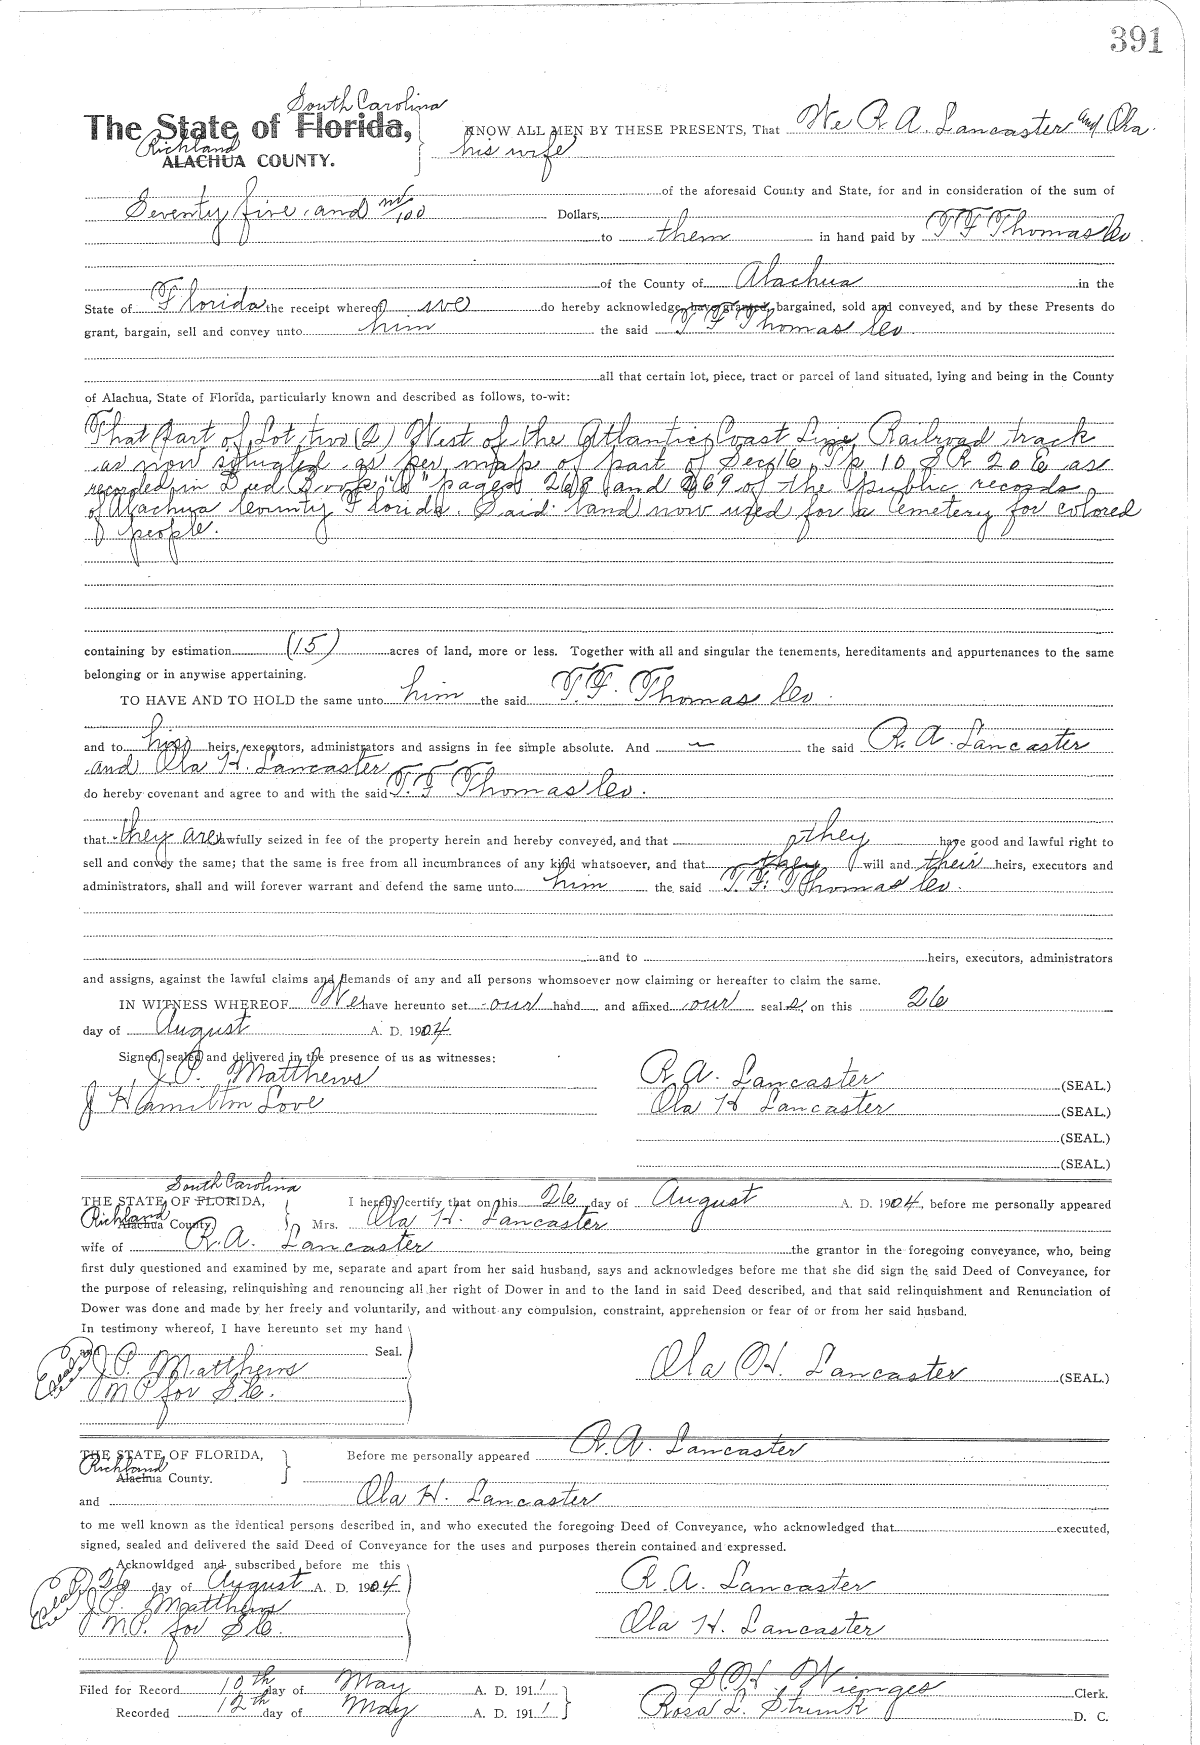 391
South Carolina
The State of Florida,
KNOW ALL MEN BY THESE PRESENTS, That We R. A. Lancaster and Ola
Richland
ALACHUA COUNTY.
his wife
of the aforesaid County and State, for and in consideration of the sum of
Seventy five and no/100 Dollars,
to them in hand paid by T F Thomas Co
of the County of Alachua in the
State of Florida the receipt whereof we do hereby acknowledge, have granted, bargained, sold and conveyed, and by these Presents do
grant, bargain, sell and convey unto him the said T F Thomas Co.
all that certain lot, piece, tract or parcel of land situated, lying and being in the County
of Alachua, State of Florida, particularly known and described as follows, to-wit:
That part of Lot two (2) West of the Atlantic Coast Line Railroad track
as now situated as per map of part of Sec 16, Tp 10 S R 20 E as
recorded in Deed Book " " pages 268 and 269 of the public records
of Alachua County Florida. Said land now used for a cemetery for colored
people.
containing by estimation (15) acres of land, more or less. Together with all and singular the tenements, hereditaments and appurtenances to the same
belonging or in anywise appertaining.
TO HAVE AND TO HOLD the same unto him the said T. F. Thomas Co.
and to his heirs, executors, administrators and assigns in fee simple absolute. And ~ the said R. A. Lancaster
and Ola H. Lancaster
do hereby covenant and agree to and with the said T. F Thomas Co.
that they are lawfully seized in fee of the property herein and hereby conveyed, and that they have good and lawful right to
sell and convey the same; that the same is free from all incumbrances of any kind whatsoever, and that they will and their heirs, executors and
administrators, shall and will forever warrant and defend the same unto him the said T. F. Thomas Co.
and to heirs, executors, administrators
and assigns, against the lawful claims and demands of any and all persons whomsoever now claiming or hereafter to claim the same.
IN WITNESS WHEREOF We have hereunto set our hand and affixed our seals, on this 26
day of August A. D. 1904
Signed, sealed and delivered in the presence of us as witnesses:
J. P. Matthews
R. A. Lancaster (SEAL.)
J Hamilton Love
Ola H Lancaster (SEAL.)
(SEAL.)
(SEAL.)
South Carolina
THE STATE OF FLORIDA,
I hereby certify that on this 26 day of August A. D. 1904, before me personally appeared
Richland
Alachua County
Mrs. Ola H. Lancaster
wife of R. A. Lancaster the grantor in the foregoing conveyance, who, being
first duly questioned and examined by me, separate and apart from her said husband, says and acknowledges before me that she did sign the said Deed of Conveyance, for
the purpose of releasing, relinquishing and renouncing all her right of Dower in and to the land in said Deed described, and that said relinquishment and Renunciation of
Dower was done and made by her freely and voluntarily, and without any compulsion, constraint, apprehension or fear of or from her said husband.
In testimony whereof, I have hereunto set my hand
and Seal.
Seal
J. P. Matthews
Ola H. Lancaster (SEAL.)
N P for S. C.
THE STATE OF FLORIDA,
Before me personally appeared R. A. Lancaster
Richland
Alachua County.
and Ola H. Lancaster
to me well known as the identical persons described in, and who executed the foregoing Deed of Conveyance, who acknowledged that executed,
signed, sealed and delivered the said Deed of Conveyance for the uses and purposes therein contained and expressed.
Acknowldged and subscribed before me this
26 day of August A. D. 1904
R. A. Lancaster
Seal
J. P. Matthews
N P. for S. C.
Ola H. Lancaster
Filed for Record 10th day of May A. D. 1911
S H Wienges Clerk.
Recorded 12th day of May A. D. 1911
Rosa L. Strunk D. C.